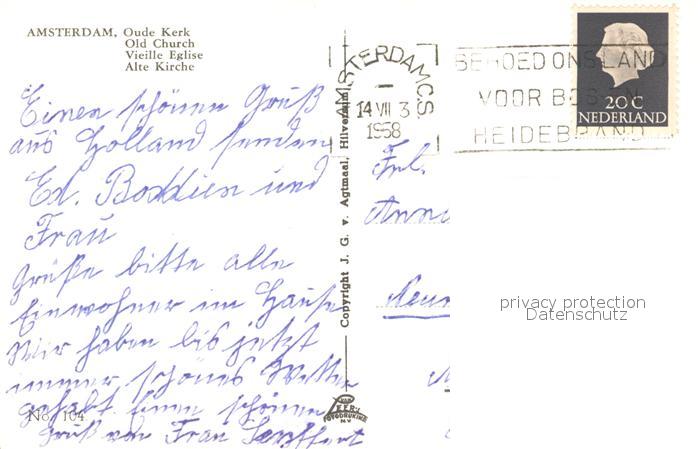 AMSTERDAM, Oude Kerk
Old Church
Vieille Eglise
Alte Kirche
Einen schönen Gruß
aus Holland senden
Ed. Boddien und
Frau
Grüße bitte alle
Einwohner im Hause
Wir haben bis jetzt
immer schönes Wetter
gehabt Einen schönen
Gruß von Frau
No. 104
Copyright J. G. v. Agtmaal, Hilversum
VAN LEER'S
FOTODRUKIND.
N.V.
AMSTERDAM C.S
14 VII 3
1958
BEHOED ONS LAND
VOOR BOS EN
HEIDEBRAND
20C
NEDERLAND
Frl.
privacy protection
Datenschutz